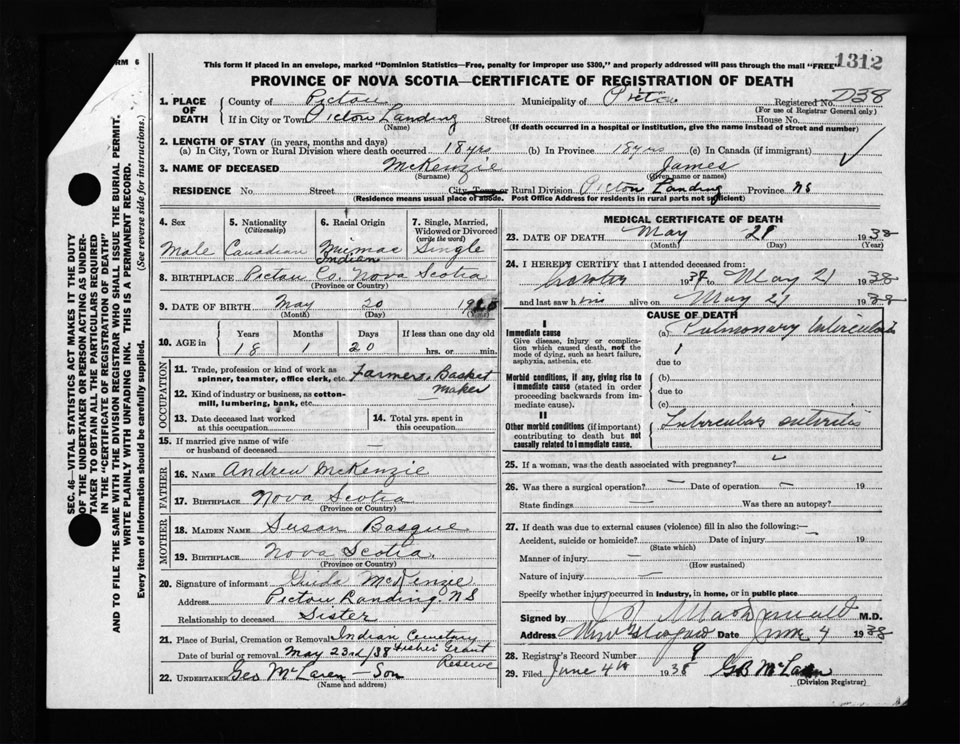 RM 6
This form if placed in an envelope, marked "Dominion Statistics—Free, penalty for improper use $300," and properly addressed will pass through the mail "FREE"
1312
PROVINCE OF NOVA SCOTIA—CERTIFICATE OF REGISTRATION OF DEATH
1. PLACE OF DEATH County of Pictou Municipality of Pictou Registered No. D38
(For use of Registrar General only)
If in City or Town Pictou Landing Street House No.
(Name) (If death occurred in a hospital or institution, give the name instead of street and number)
2. LENGTH OF STAY (in years, months and days)
(a) In City, Town or Rural Division where death occurred 18 yrs (b) In Province 18 yrs (c) In Canada (if immigrant)
3. NAME OF DECEASED McKenzie James
(Surname) (Given name or names)
RESIDENCE No. Street City, Town or Rural Division Pictou Landing Province NS
(Residence means usual place of abode. Post Office Address for residents in rural parts not sufficient)
4. Sex Male
5. Nationality (Citizenship) Canadian
6. Racial Origin Micmac Indian
7. Single, Married, Widowed or Divorced (write the word) Single
8. BIRTHPLACE Pictou Co. Nova Scotia
(Province or Country)
9. DATE OF BIRTH May 20 19
(Month) (Day) (Year)
10. AGE in Years Months Days If less than one day old
18 1 20 hrs. or min.
OCCUPATION
11. Trade, profession or kind of work as spinner, teamster, office clerk, etc. Farmer, Basket maker
12. Kind of industry or business, as cotton-mill, lumbering, bank, etc.
13. Date deceased last worked at this occupation
14. Total yrs. spent in this occupation
15. If married give name of wife or husband of deceased —
FATHER
16. NAME Andrew McKenzie
17. BIRTHPLACE Nova Scotia
(Province or Country)
MOTHER
18. MAIDEN NAME Susan Basque
19. BIRTHPLACE Nova Scotia.
(Province or Country)
20. Signature of informant McKenzie
Address Pictou Landing. NS
Relationship to deceased Sister
21. Place of Burial, Cremation or Removal Indian Cemetery
Date of burial or removal May 23rd/38 Fisher Grant Reserve
22. UNDERTAKER Geo McLaren Son
(Name and address)
MEDICAL CERTIFICATE OF DEATH
23. DATE OF DEATH May 21 1938
(Month) (Day) (Year)
24. I HEREBY CERTIFY that I attended deceased from:
1937 to May 21 1938
and last saw him alive on May 21 1938
CAUSE OF DEATH
I
Immediate cause
Give disease, injury or complication which caused death, not the mode of dying, such as heart failure, asphyxia, asthenia, etc.
(a) Pulmonary tuberculosis
due to
Morbid conditions, if any, giving rise to immediate cause (stated in order proceeding backwards from immediate cause).
(b)
due to
(c)
II
Other morbid conditions (if important) contributing to death but not causally related to immediate cause.
Tubercular enteritis
25. If a woman, was the death associated with pregnancy?
26. Was there a surgical operation? — Date of operation — 19
State findings Was there an autopsy?
27. If death was due to external causes (violence) fill in also the following:—
Accident, suicide or homicide? Date of injury — 19
(State which)
Manner of injury —
(How sustained)
Nature of injury —
Specify whether injury occurred in industry, in home, or in public place
Signed by MacDonald M.D.
Address New Glasgow Date June 4 1938
28. Registrar's Record Number 9
29. Filed June 4th 1938 GB McLaren
(Division Registrar)
SEC. 46—VITAL STATISTICS ACT MAKES IT THE DUTY
OF THE UNDERTAKER OR PERSON ACTING AS UNDER-
TAKER TO OBTAIN ALL THE PARTICULARS REQUIRED
IN THE "CERTIFICATE OF REGISTRATION OF DEATH"
AND TO FILE THE SAME WITH THE DIVISION REGISTRAR WHO SHALL ISSUE THE BURIAL PERMIT.
WRITE PLAINLY WITH UNFADING INK. THIS IS A PERMANENT RECORD.
Every item of information should be carefully supplied. (See reverse side for instructions.)